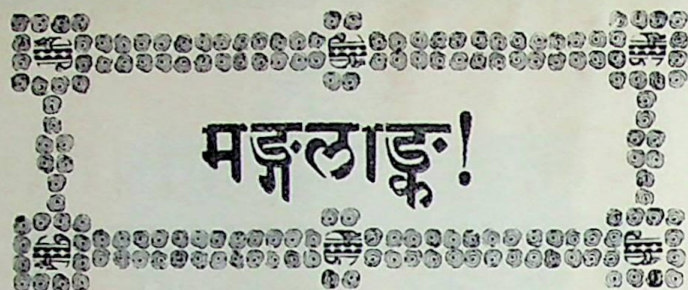 मङ्गलाङ्क!